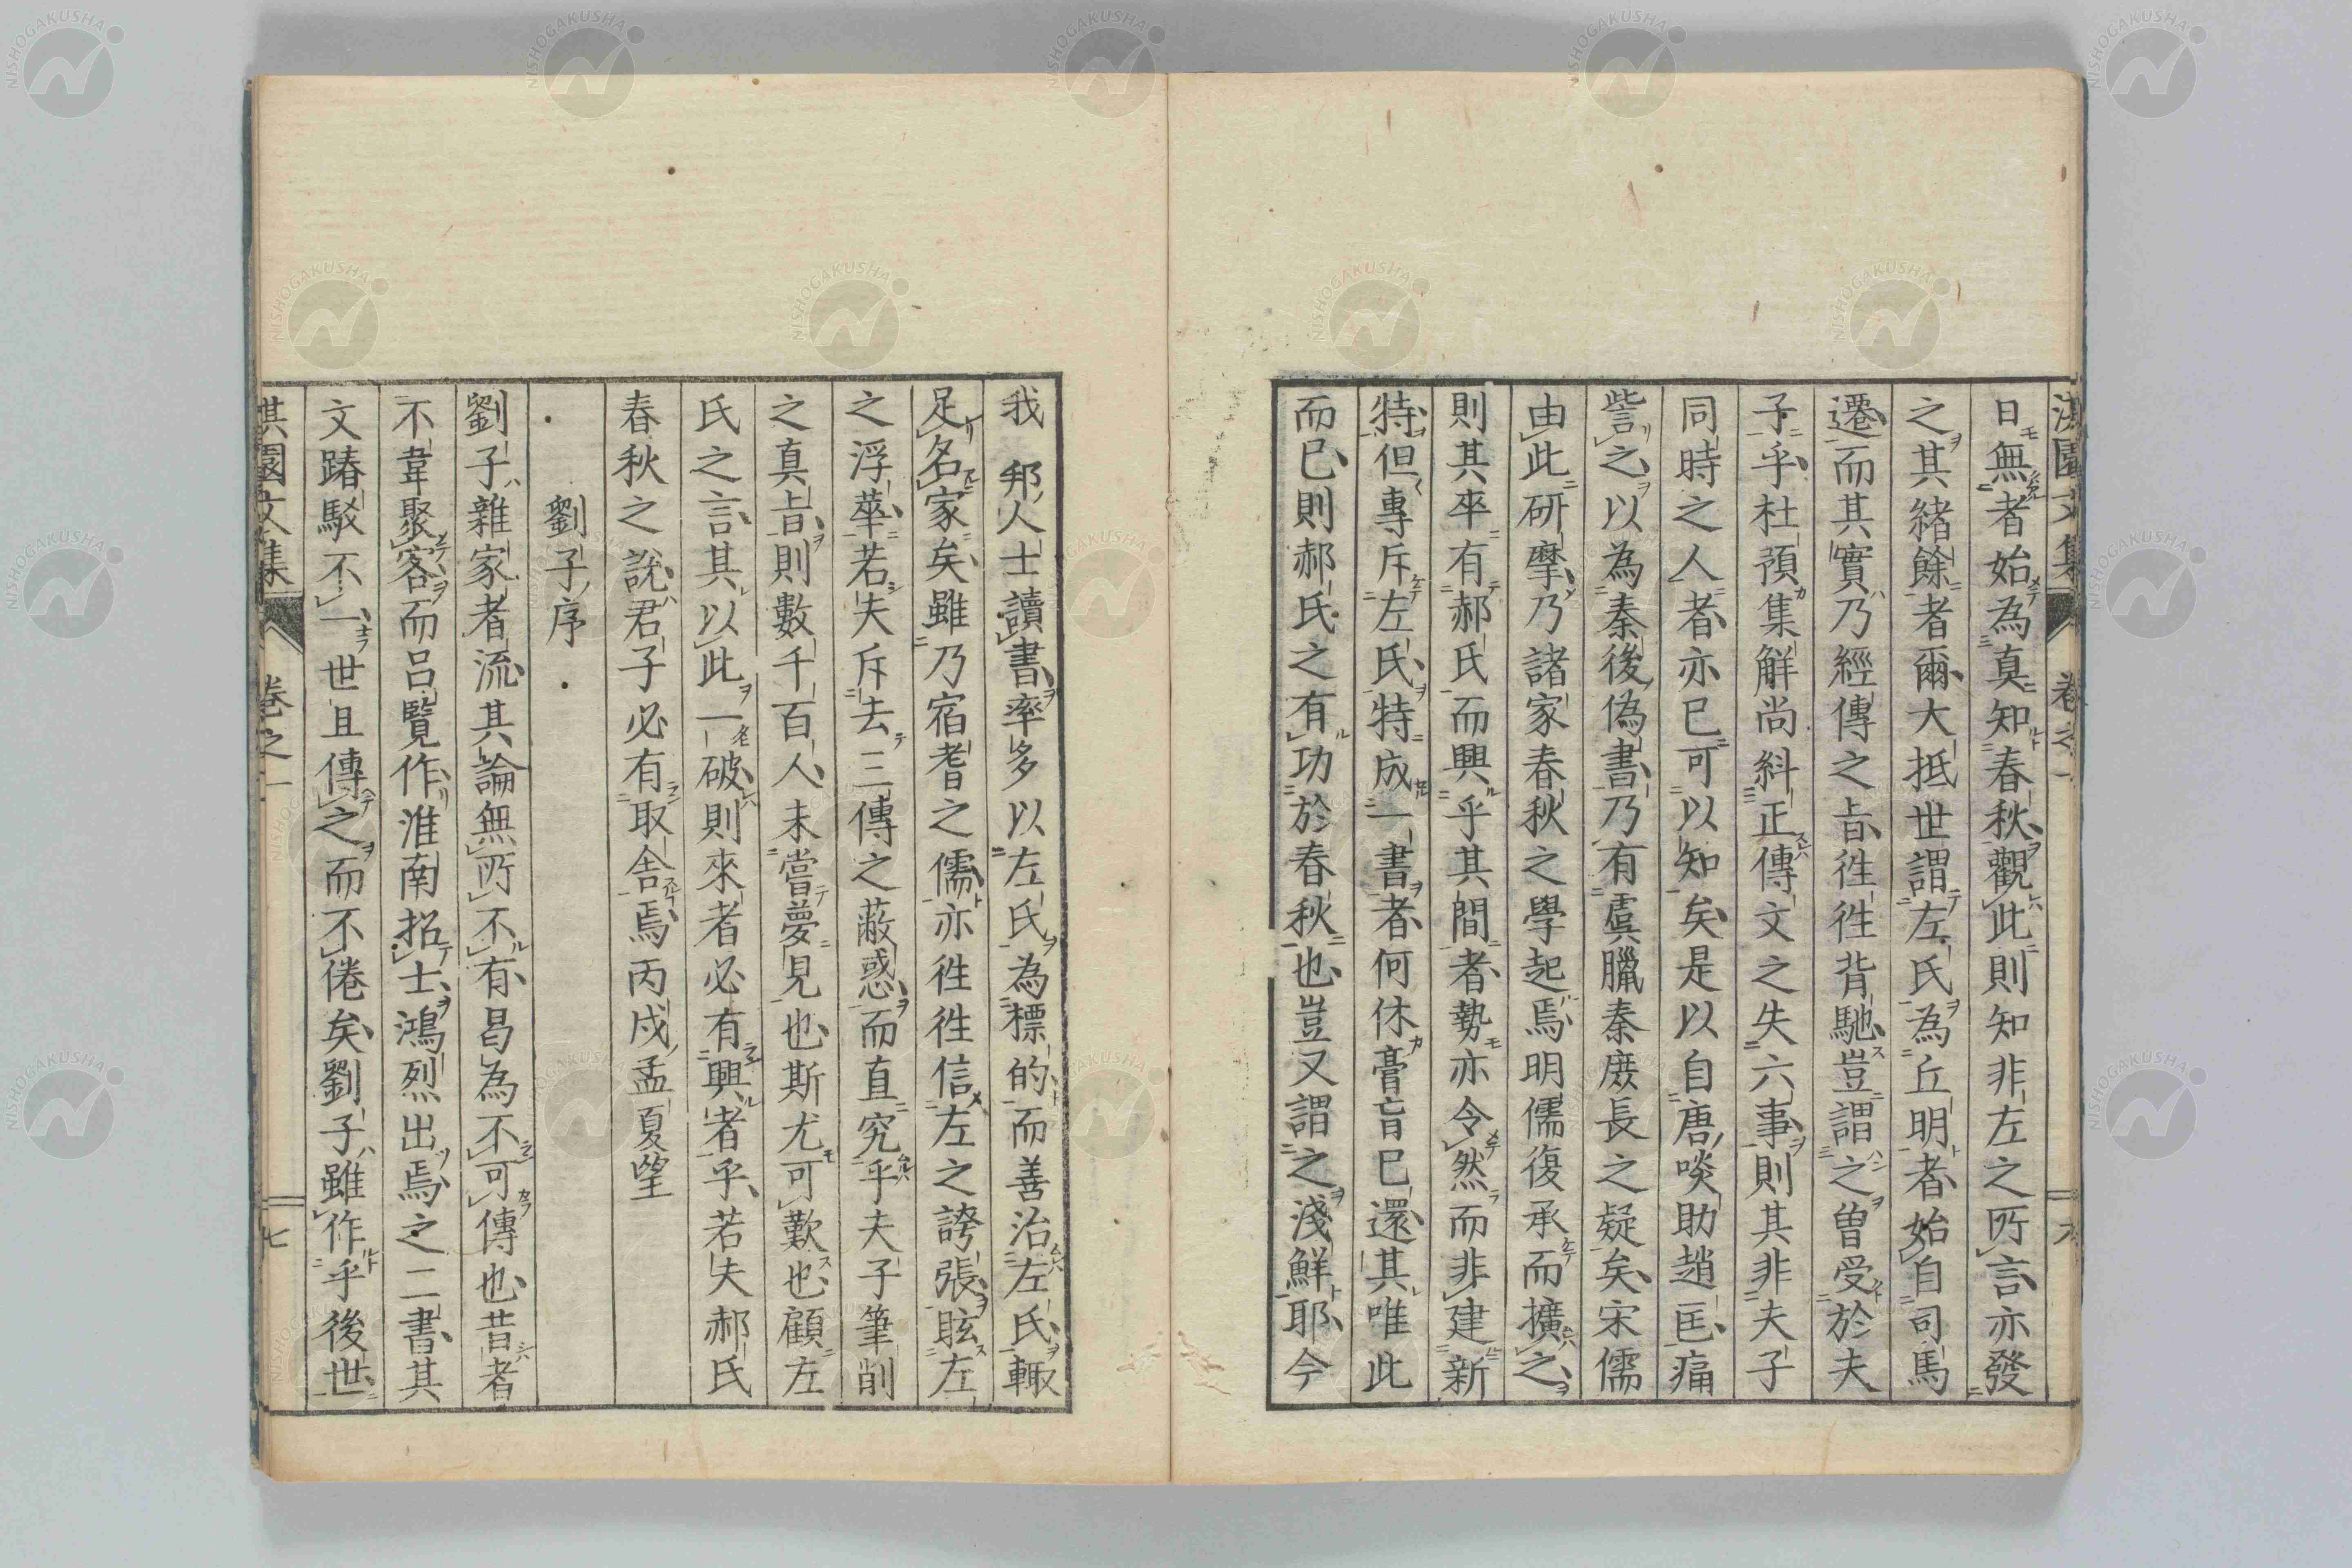 淇園文集 卷之一 六
日無者始為真知春秋觀此則知非左之所言亦發
之其緒餘者爾大抵世謂左氏為丘明者始自司馬
遷而其實乃經傳之旨徃徃背馳豈謂之曽受於夫
子乎杜預集解尚糾正傳文之失六事則其非夫子
同時之人者亦已可以知矣是以自唐啖助趙匡痛
訾之以為秦後偽書乃有虞臘秦庻長之疑矣宋儒
由此研摩乃諸家春秋之學起焉明儒復承而擴之
則其卒有郝氏而興乎其間者勢亦令然而非建新
特但專斥左氏特成一書者何休膏肓已還其唯此
而已則郝氏之有功於春秋也豈又謂之淺鮮耶今
我 邦人士讀書率多以左氏為標的而善治左氏輙
足名家矣雖乃宿耆之儒亦徃徃信左之誇張眩左
之浮華若夫斥去三傳之蔽惑而直究乎夫子筆削
之真旨則數千百人未嘗夢見也斯尤可歎也顧左
氏之言其以此一破則來者必有興者乎若夫郝氏
春秋之說君子必有取舎焉丙戍孟夏望
劉子序
劉子雜家者流其論無所不有曷為不可傳也昔者
不韋聚客而呂覧作淮南招士鴻烈出焉之二書其
文踳駁不一世且傳之而不倦矣劉子雖作乎後世
淇園文集 卷之一 七
NISHOGAKUSHA